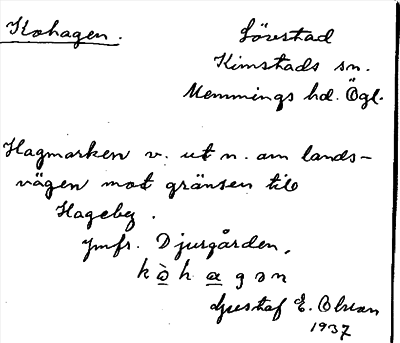 Kohagen.
Lörestad
Kimstads sn.
Memmings hd. Ögl.
Hagmarken v. ut n. om lands-
vägen mot gränsen till
Hageby.
Jmfr. Djurgården.
kò̱h a̱ gən
Gustaf E. Olsson
1937